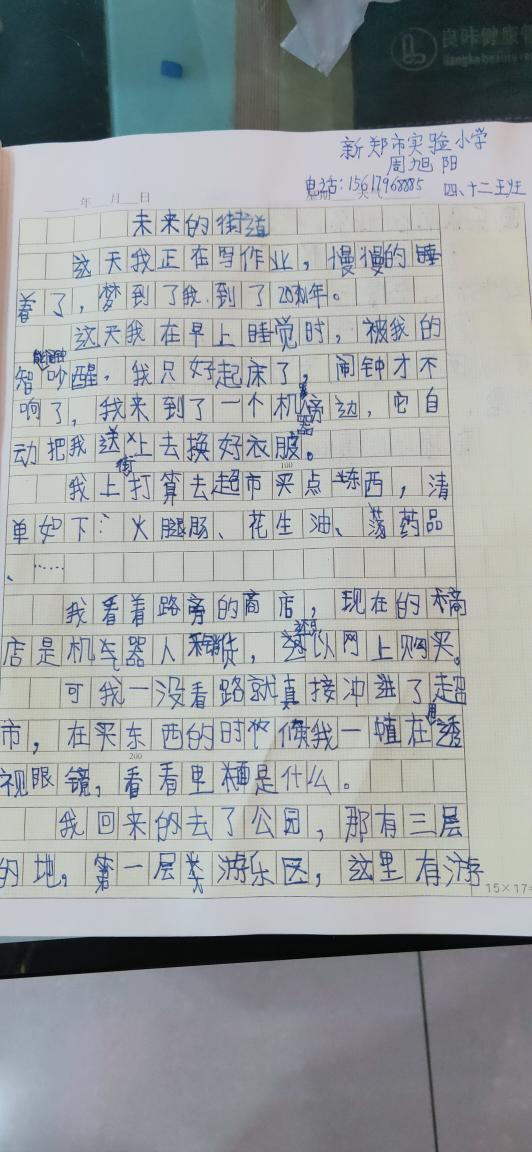 良咔健康管
新郑市实验小学
周旭阳
电话:15617968885 四、十二班
年 月 日
未来的街道
这天我正在写作业,慢慢的睡
着了,梦到了我到了年。
这天我在早上睡觉时,被我的
智能闹钟吵醒,我只好起床了,闹钟才不
响了,我来到了一个机器旁边,它自
动把我送上去换好衣服。
我上街打算去超市买点东西,清
单如下:火腿肠、花生油、药品
、……
我看着路旁的商店,现在的商
店是机器人卖货,还可以网上购买。
可我一没看路就直接冲进了超
市,在买东西的时候我一直在用透
视眼镜,看看里面是什么。
我回来的去了公园,那有三层
的地,第一层类游乐区,这里有游
100
200
15×17=